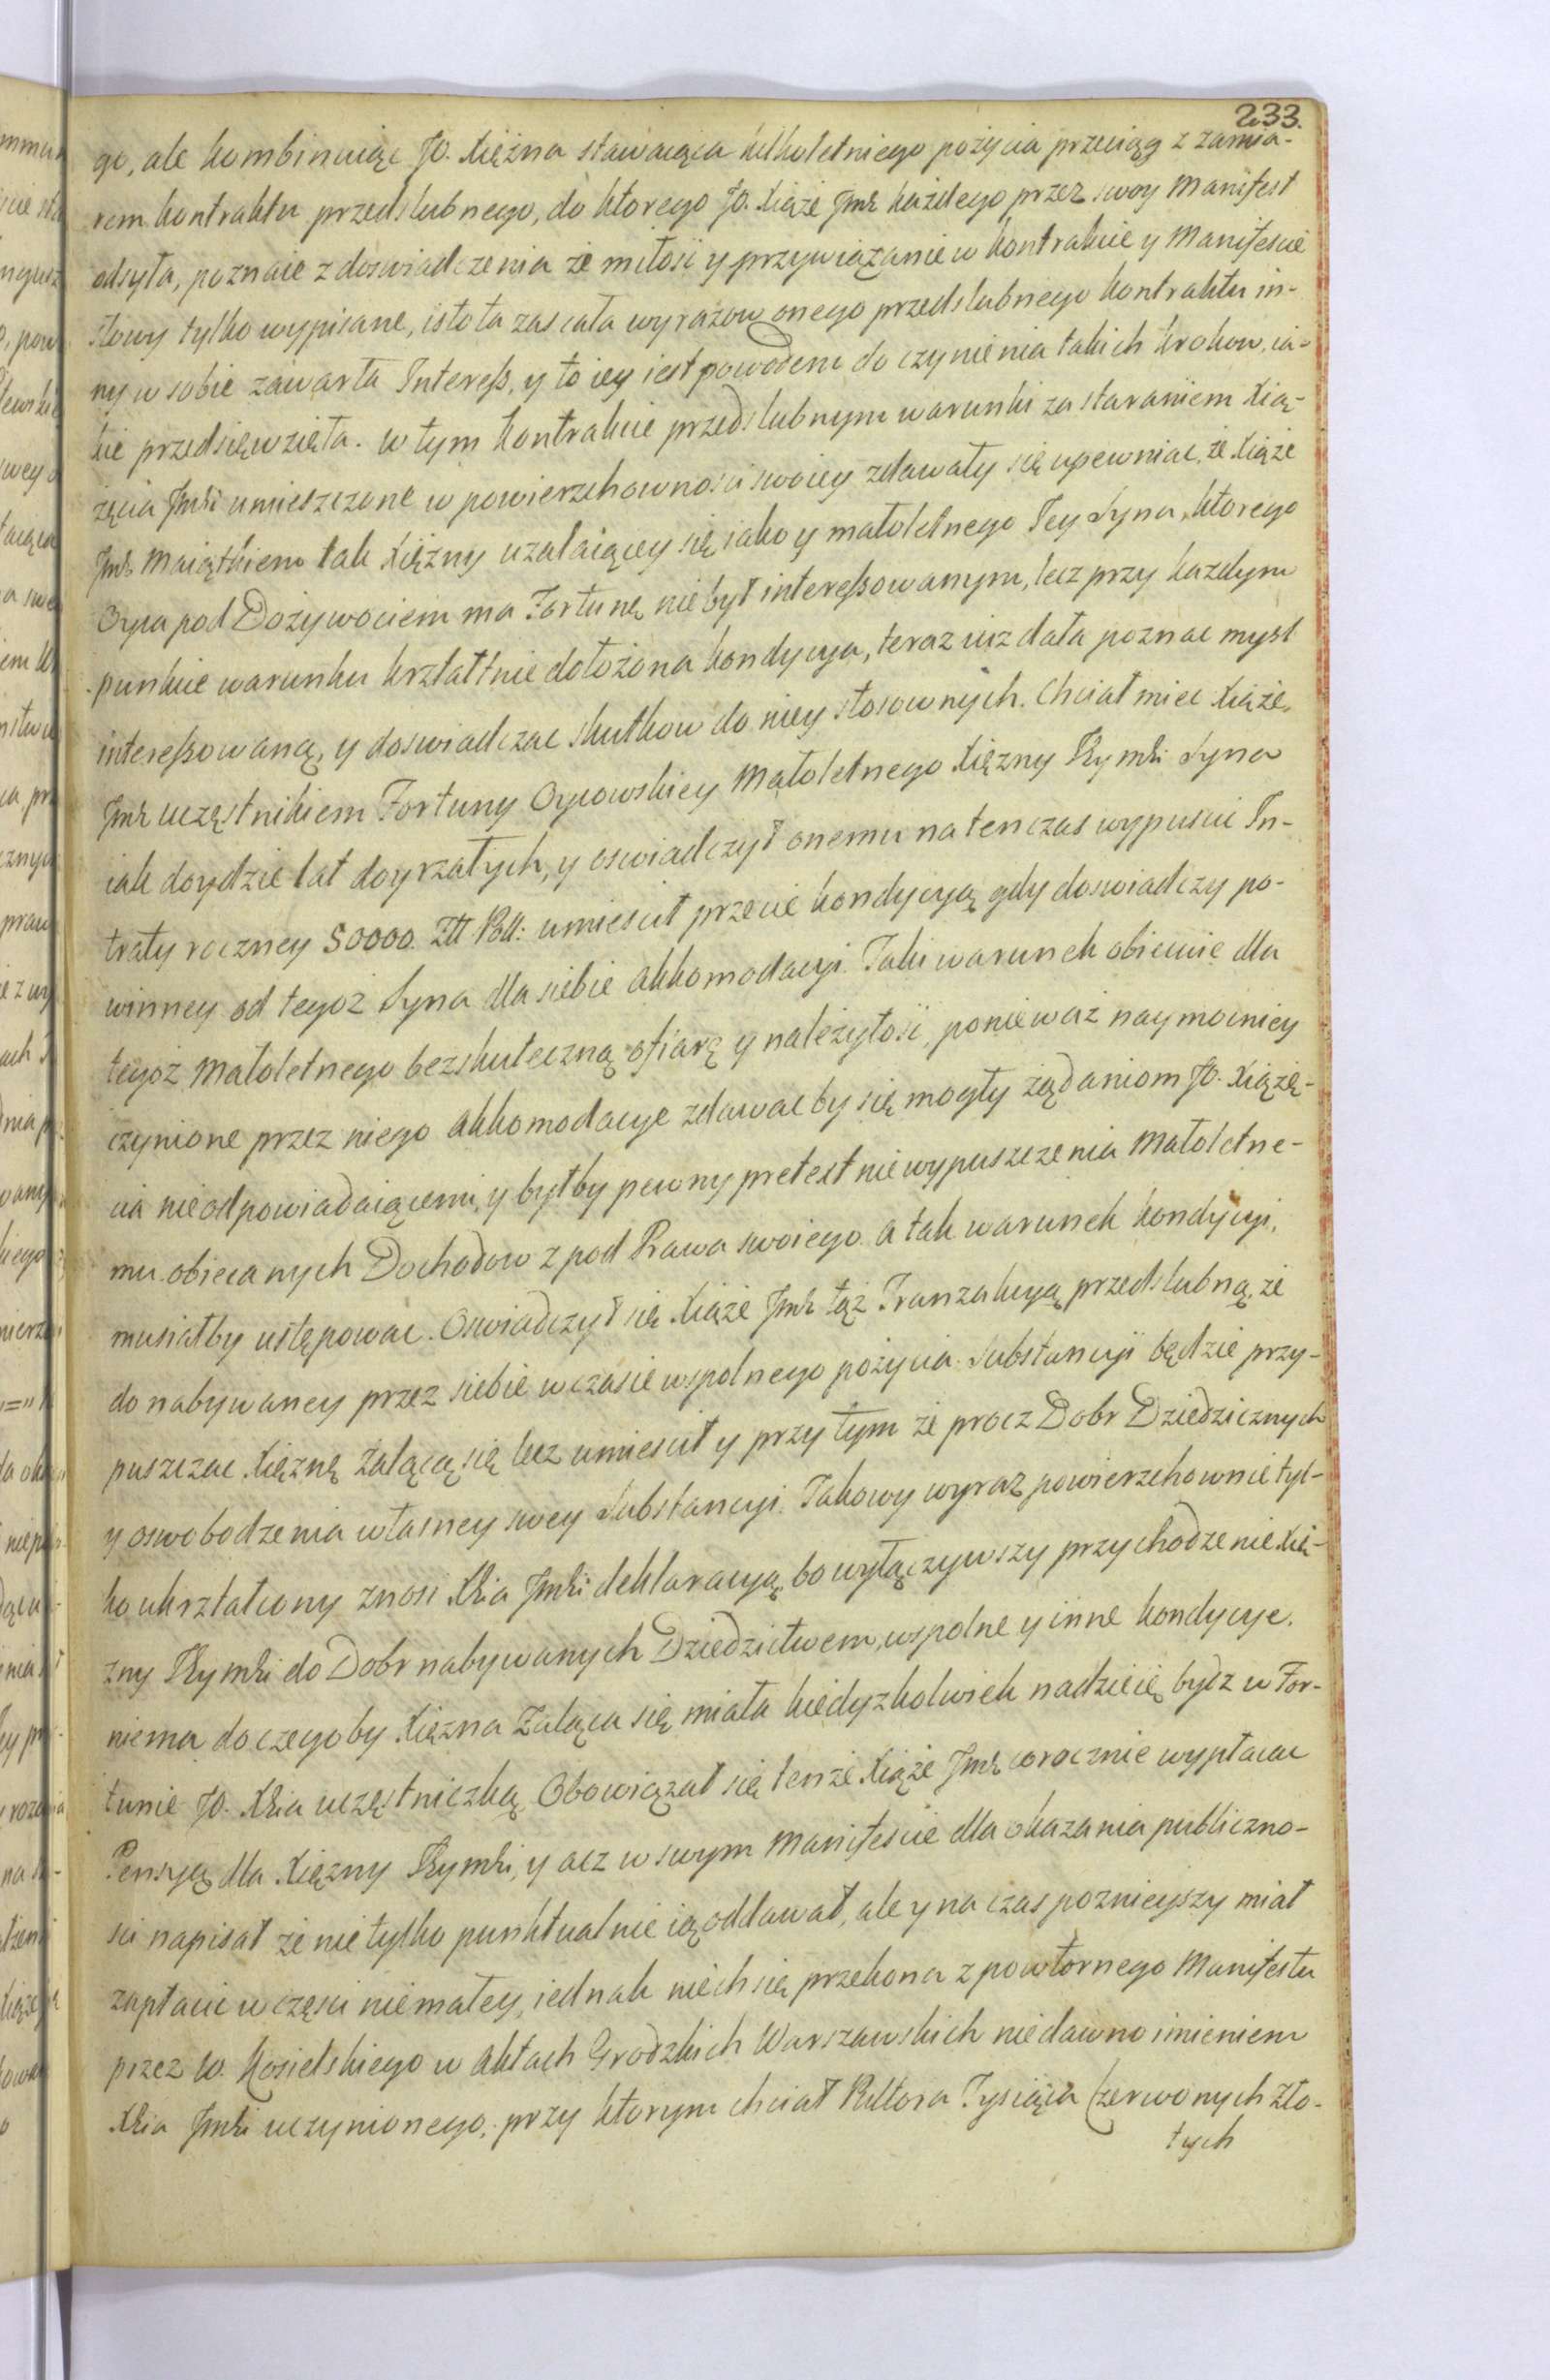 233.
go, ale kombinuiąc JO. Xiężna stawaiąca kilkoletniego pożycia przeciąg z zamia-
rem kontraktu przedslubnego, do ktorego JO. Xiąże Jmć każdego przez swoy Manifest
odsyła, poznaie z doswiadczenia że miłość y przywiązanie w kontrakcie y Manifescie
słowy tylko wypisane, istota zas cała wyrazow onego przedslubnego kontraktu in-
ny w sobie zawarła Interess, y to iey iest powodem do czynienia takich krokow, ia-
kie przedsięwzięła. w tym kontrakcie przedslubnym warunki za staraniem Xią-
żęcia Jmści umieszczone w powierzchownosci swoiey zdawały się upewniac, że Xiąże
Jmć Maiątkiem tak Xiężny użalaiącey się iako y małoletnego Jey Syna, ktorego
Oyca pod Dożywociem ma Fortunę nie był interessowanym, lecz przy kazdym
punkcie warunku krztałtnie dołożona kondycya, teraz iuż dała poznac mysl
interessowaną, y doswiadczac skutkow do niey stosownych. Chciał miec Xiąże
Jmć uczęstnikiem Fortuny Oycowskiey Małoletnego Xiężny Jeymści Syna
iak doydzie lat doyrzałych, y oswiadczył onemu na ten czas wypuscic In-
traty roczney 50000. Złł Poll: umiescił przecie kondycyą gdy doswiadczy po-
winney od tegoż Syna dla siebie akkomodacyi. Taki warunek obiecuie dla
tegoż Małoletnego bezskuteczną ofiarę y należytość, ponieważ naymocniey
czynione przez niego akkomodacye zdawac by się mogły żądaniom JO. Xiążę-
cia nieodpowiadaiącemi, y byłby pewny pretext niewypuszczenia Małoletne-
mu obiecanych Dochodow z pod Prawa swoiego. a tak warunek kondycyi,
musiałby ustępowac. Oswiadczył się Xiąże Jmć tąż Tranzakcyą przedslubną, że
do nabywaney przez siebie w czasie wspolnego pożycia Substancyi będzie przy-
puszczac Xiężnę żalącą się lecz umiescił y przy tym że procz Dobr Dziedzicznych
y oswobodzenia własney swey Substancyi. Takowy wyraz powierzchownie tyl-
ko ukrztałcony znosi Xcia Jmści deklaracyą, bo wyłączywszy przychodzenie Xię-
zny Jeymści do Dobr nabywanych Dziedzictwem, wspolne y inne kondycye.
niema do czegoby Xiężna Żaląca się miała kiedyżkolwiek nadzieię bydz w For-
tunie JO. Xcia uczęstniczką. Obowiązał się tenże Xiąże Jmć corocznie wypłacac
Pensyą dla Xiężny Jeymści, y acz w swym Manifescie dla okazania publiczno-
sci napisał że nie tylko punktualnie ią oddawał, ale y na czas poznieyszy miał
zapłacic w częsci niemałey, iednak niech się przekona z powtornego Manifestu
przez W. Kosielskiego w Aktach Grodzkich Warszawskich niedawno imieniem
Xcia Jmści uczynionego, przy ktorym chciał Połtora Tysiąca Czerwonych Zło-
tych